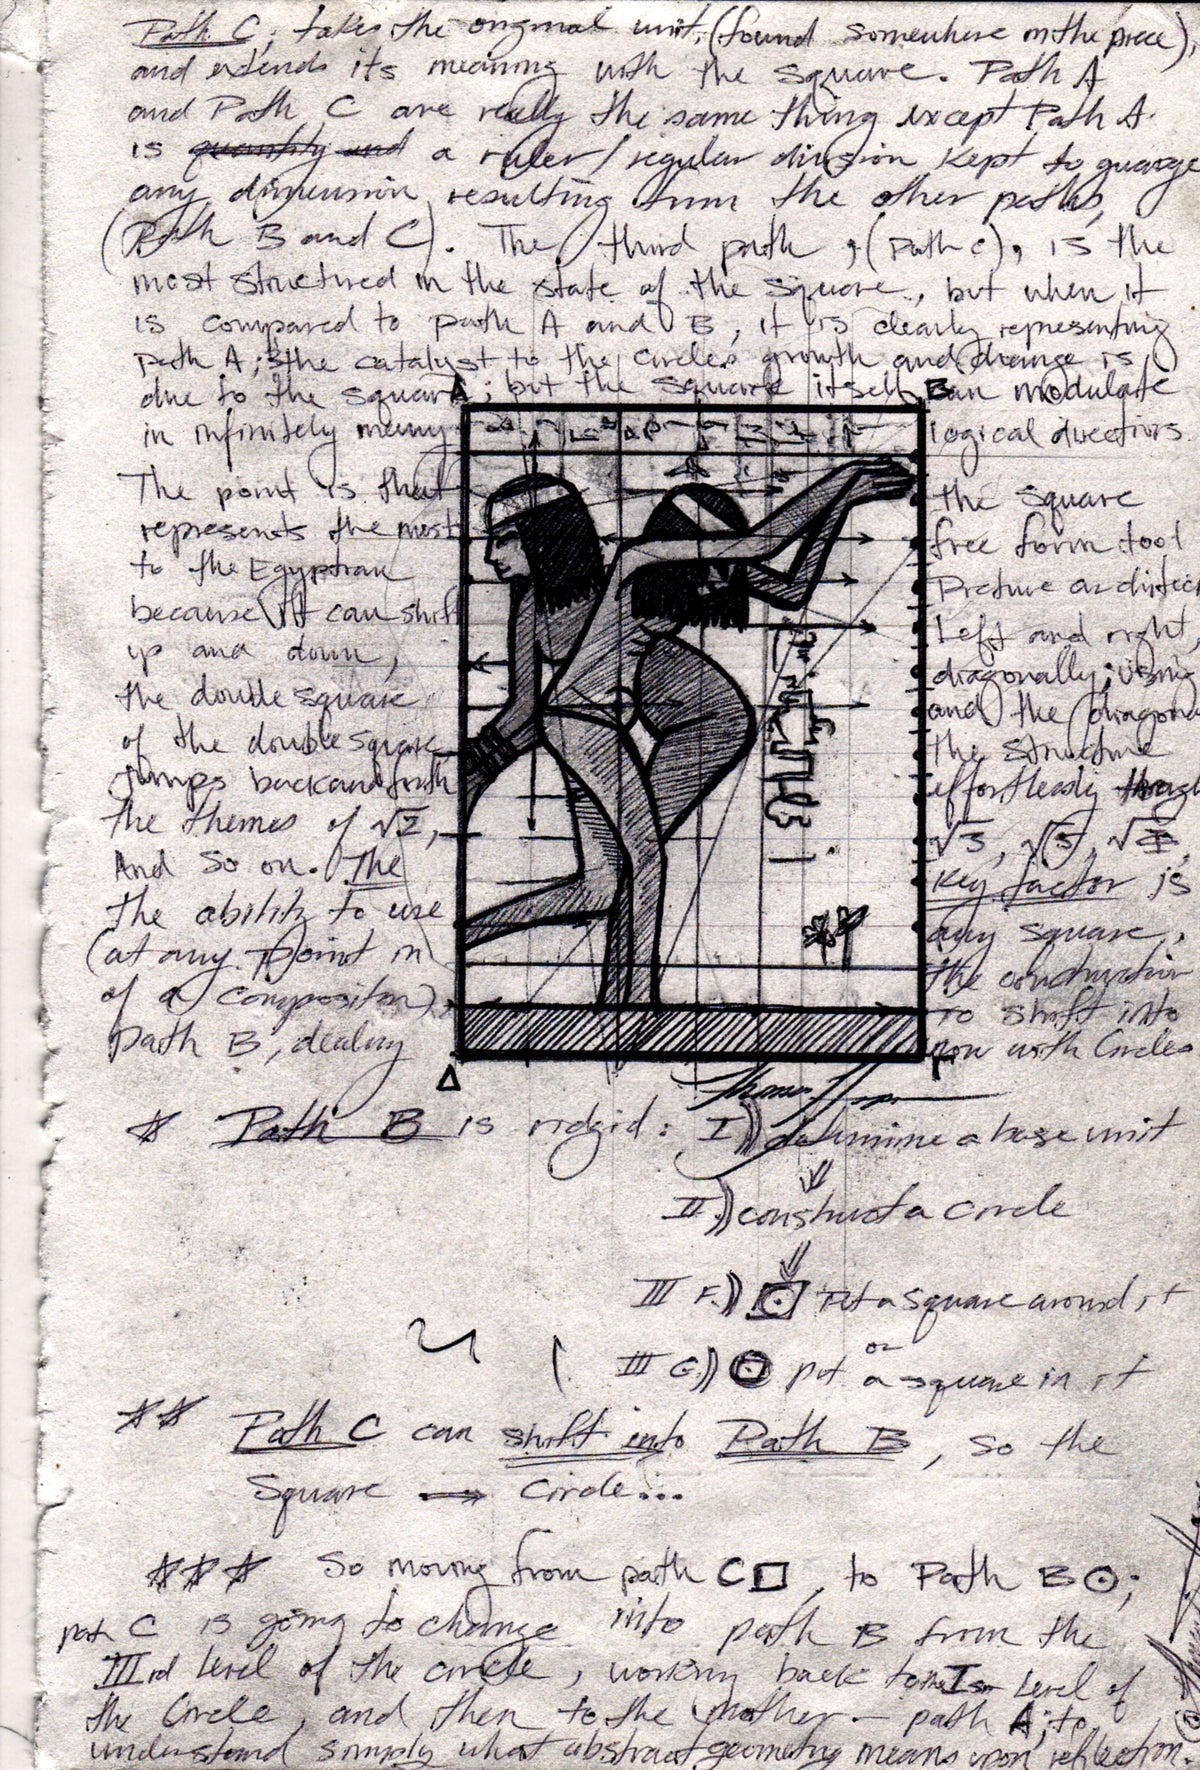 Path C; takes the original unit, (found somewhere in the piece),
and extends its meaning with the square. Path A
and Path C are really the same thing except Path A
is quantity and a ruler/regular division kept to guarge
any dimension resulting from the other paths,
(Path B and C). The third path, (Path C), is the
most structured in the state of the square, but when it
is compared to path A and B, it is clearly representing
path A; the catalyst to the circles growth and change is
due to the square; but the square itself can modulate
in infinitely many logical directions.
The point is that the square
represents the most free form tool
to the Egyptian Picture architect
because it can shift Left and right,
up and down, diagonally; using
the double square and the diagonal
of the double square the structure
jumps back and forth effortlessly through
the themes of √2, √3, √5,
And so on. The key factor is
the ability to use any square,
(at any point in the construction
of a composition), to shift into
Path B, dealing now with Circles
A B
Δ Γ
* Path B is ridgid: I)) determine a base unit
II)) construct a circle
III F.)) Put a square around it
or
III G.)) put a square in it
** Path C can shift into Path B, so the
Square → Circle...
*** So moving from path C □, to Path B ⊙;
path C is going to change into path B from the
IIIrd level of the circle, working back to the Ist Level of
the Circle, and then to the mother - path A; to
understand simply what abstract geometry means upon reflection.